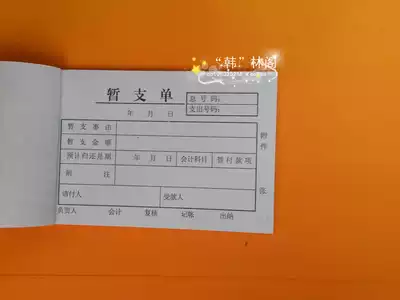 “韩”林阁
暂支单
总号码：
支出号码：
年 月 日
暂支事由
暂支金额
预计归还日期 年 月 日 会计科目 暂付款项
附注
附件 张
请付人 受款人
负责人 会计 复核 记帐 出纳